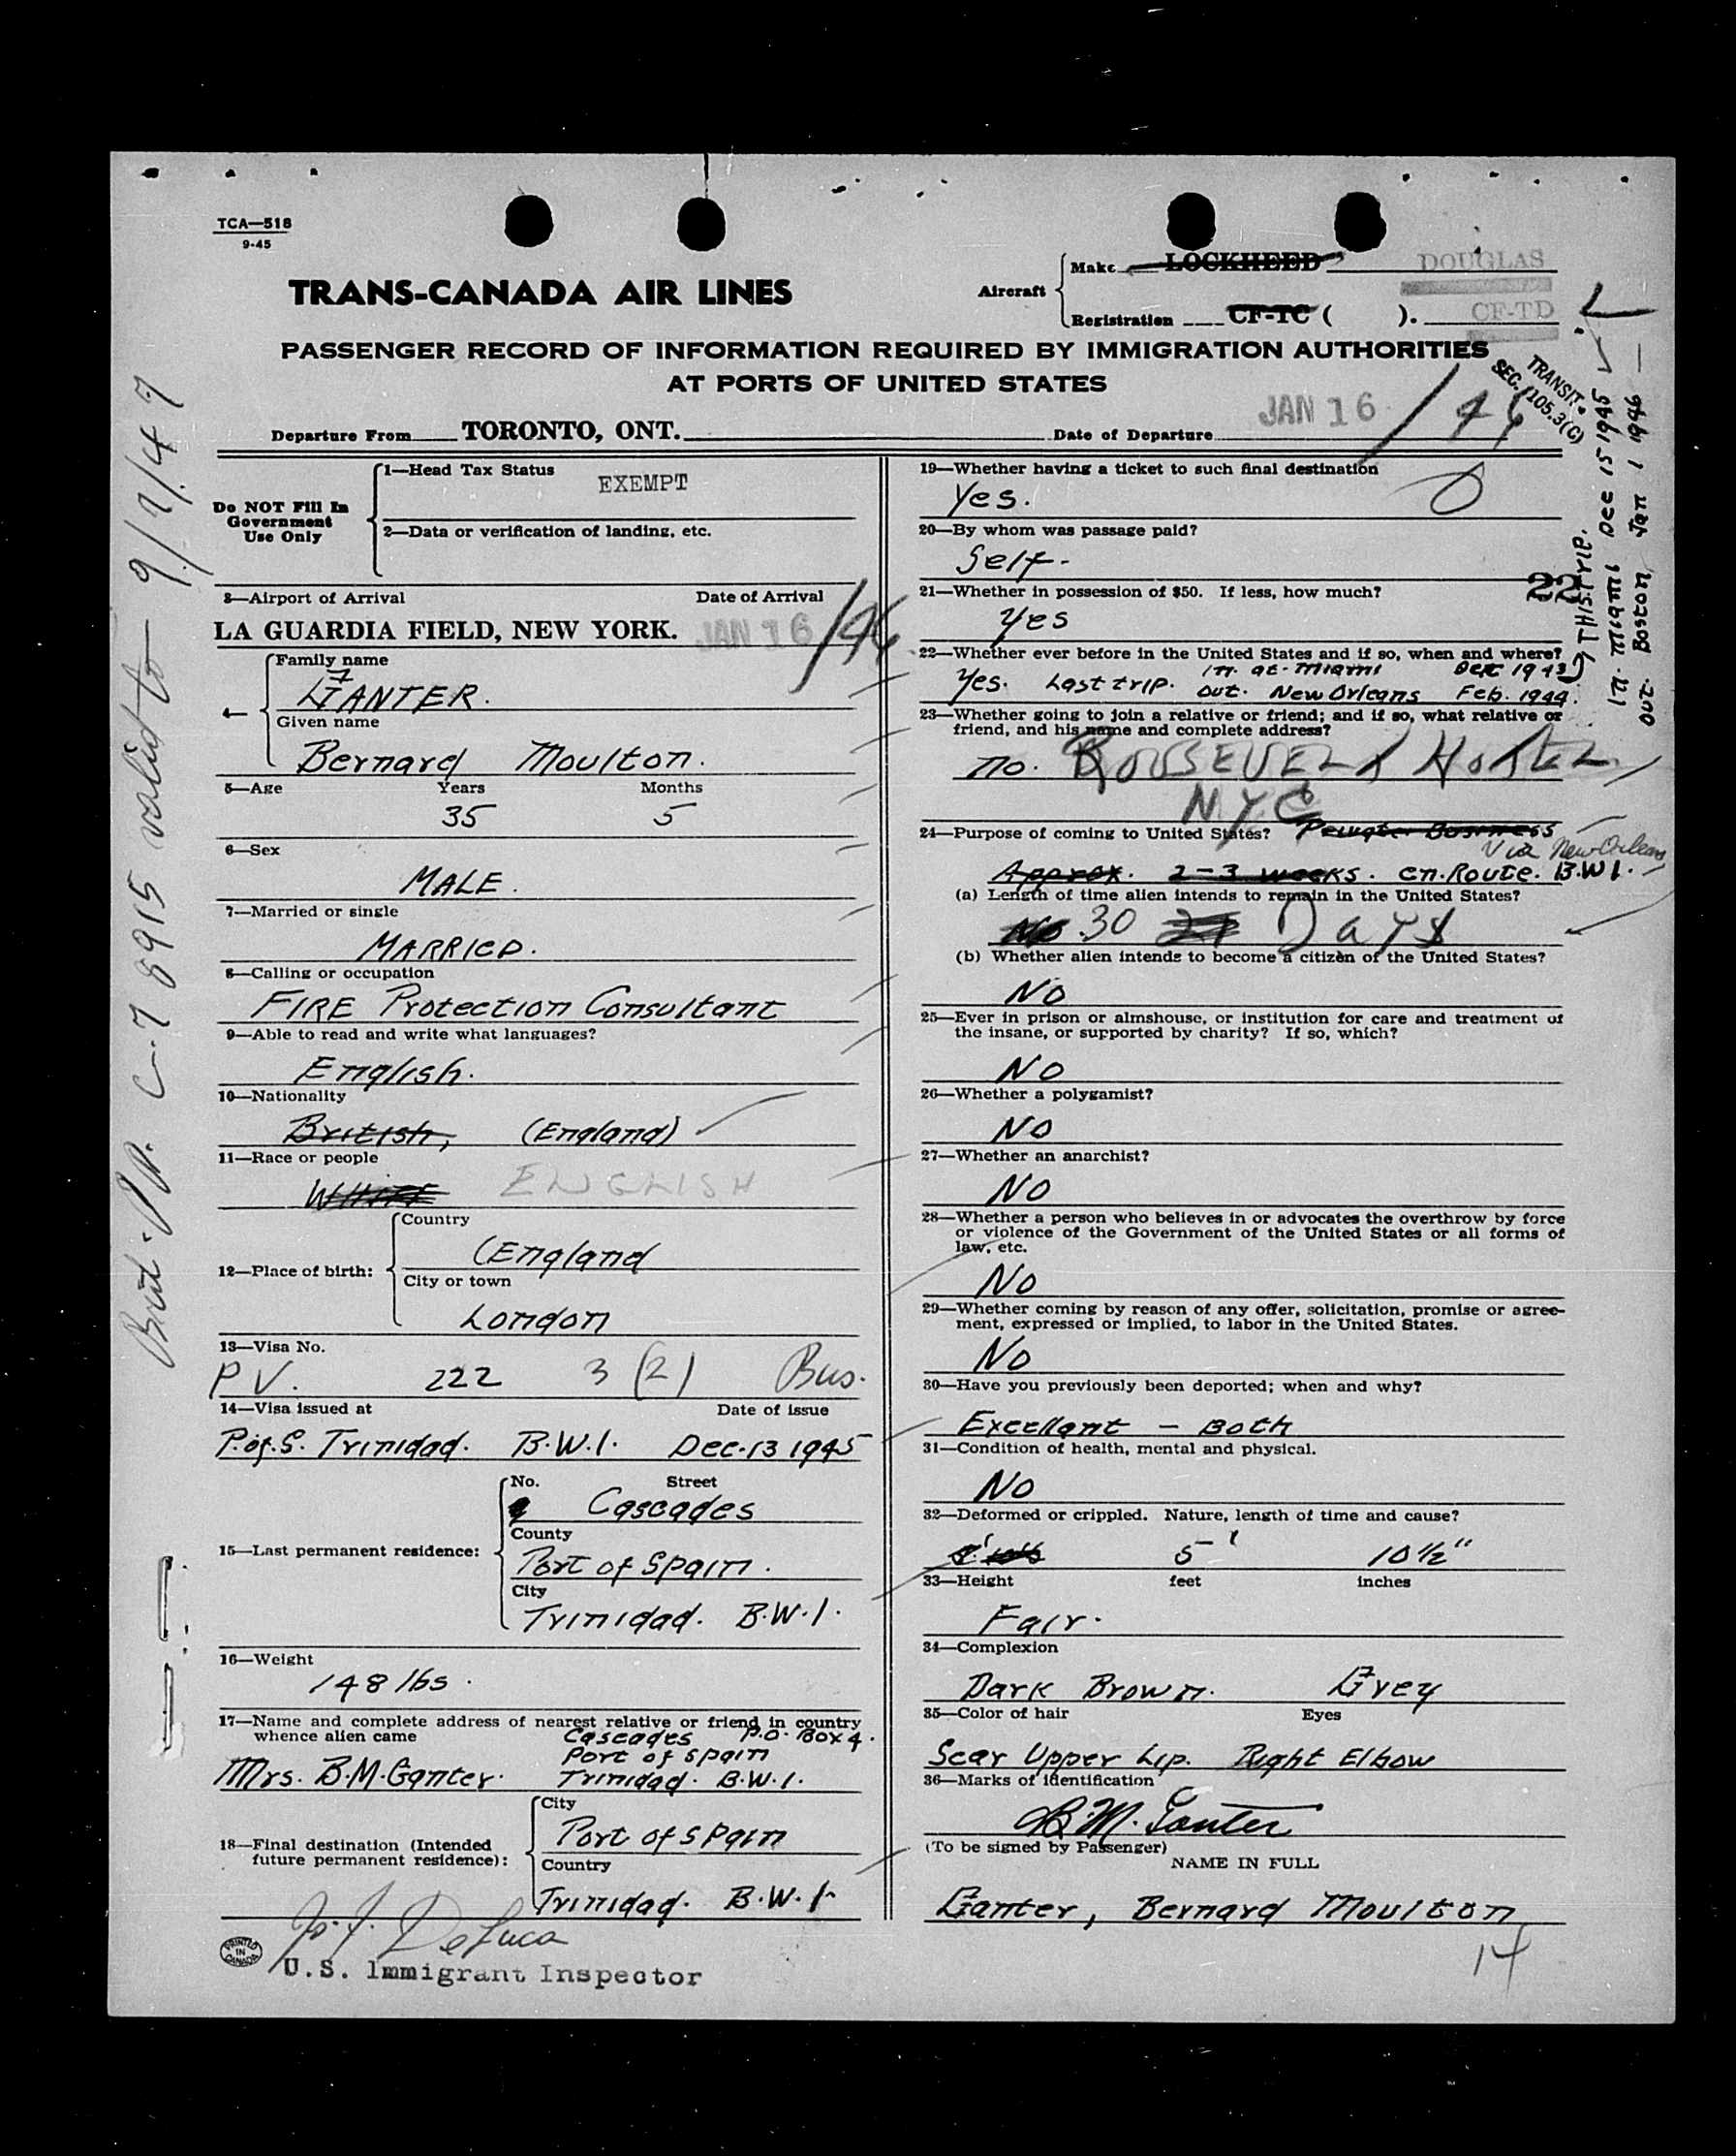 TCA—518
9-45
TRANS-CANADA AIR LINES
Aircraft
Make LOCKHEED DOUGLAS
Registration CF-TC ( ). CF-TD
PASSENGER RECORD OF INFORMATION REQUIRED BY IMMIGRATION AUTHORITIES
AT PORTS OF UNITED STATES
TRANSIT.
SEC. 105.3(C)
Departure From TORONTO, ONT. Date of Departure JAN 16 /46
Do NOT Fill In
Government
Use Only
1—Head Tax Status
EXEMPT
2—Data or verification of landing, etc.
3—Airport of Arrival Date of Arrival
LA GUARDIA FIELD, NEW YORK. JAN 16 /46
4—
Family name
GANTER.
Given name
Bernard Moulton.
5—Age Years Months
35 5
6—Sex
MALE.
7—Married or single
MARRIED.
8—Calling or occupation
FIRE Protection Consultant
9—Able to read and write what languages?
English.
10—Nationality
British, (England)
11—Race or people
WHITE ENGLISH
12—Place of birth:
Country
England
City or town
London
13—Visa No.
P V. 222 3 (2) Bus.
14—Visa issued at Date of issue
P.of.S. Trinidad. B.W.I. Dec.13 1945
15—Last permanent residence:
No. Street
Cascades
County
Port of Spain.
City
Trinidad. B.W.I.
16—Weight
148 lbs.
17—Name and complete address of nearest relative or friend in country
whence alien came
Cascades P.O. Box 4.
Port of Spain
Mrs. B.M. Ganter. Trinidad. B.W.I.
18—Final destination (Intended
future permanent residence):
City
Port of Spain
Country
Trinidad. B.W.I.
De Luca
U.S. Immigrant Inspector
PRINTED
IN
CANADA
19—Whether having a ticket to such final destination
Yes.
20—By whom was passage paid?
Self-
21—Whether in possession of $50. If less, how much?
22
Yes
22—Whether ever before in the United States and if so, when and where?
in. at. Miami Dec 1943
Yes. Last trip. out. New Orleans Feb. 1944.
23—Whether going to join a relative or friend; and if so, what relative or
friend, and his name and complete address?
no. ROOSEVELT HOTEL
NYC
24—Purpose of coming to United States? Business
Via New Orleans
Approx. 2-3 weeks. en. Route. B.W.I.
(a) Length of time alien intends to remain in the United States?
30 21 DAYS
(b) Whether alien intends to become a citizen of the United States?
NO
25—Ever in prison or almshouse, or institution for care and treatment of
the insane, or supported by charity? If so, which?
NO
26—Whether a polygamist?
NO
27—Whether an anarchist?
NO
28—Whether a person who believes in or advocates the overthrow by force
or violence of the Government of the United States or all forms of
law, etc.
NO
29—Whether coming by reason of any offer, solicitation, promise or agree-
ment, expressed or implied, to labor in the United States.
NO
30—Have you previously been deported; when and why?
Excellant - Both
31—Condition of health, mental and physical.
NO
32—Deformed or crippled. Nature, length of time and cause?
5' 10½"
33—Height feet inches
Fair.
34—Complexion
Dark Brown. Grey
35—Color of hair Eyes
Scar Upper Lip. Right Elbow
36—Marks of identification
B.M. Ganter
(To be signed by Passenger)
NAME IN FULL
Ganter, Bernard Moulton
14
THIS TRIP.
In. Miami Dec 15 1945
Out. Boston Jan 1 1946
Brit. P.P. C-7 8915 valid to 9/7/47